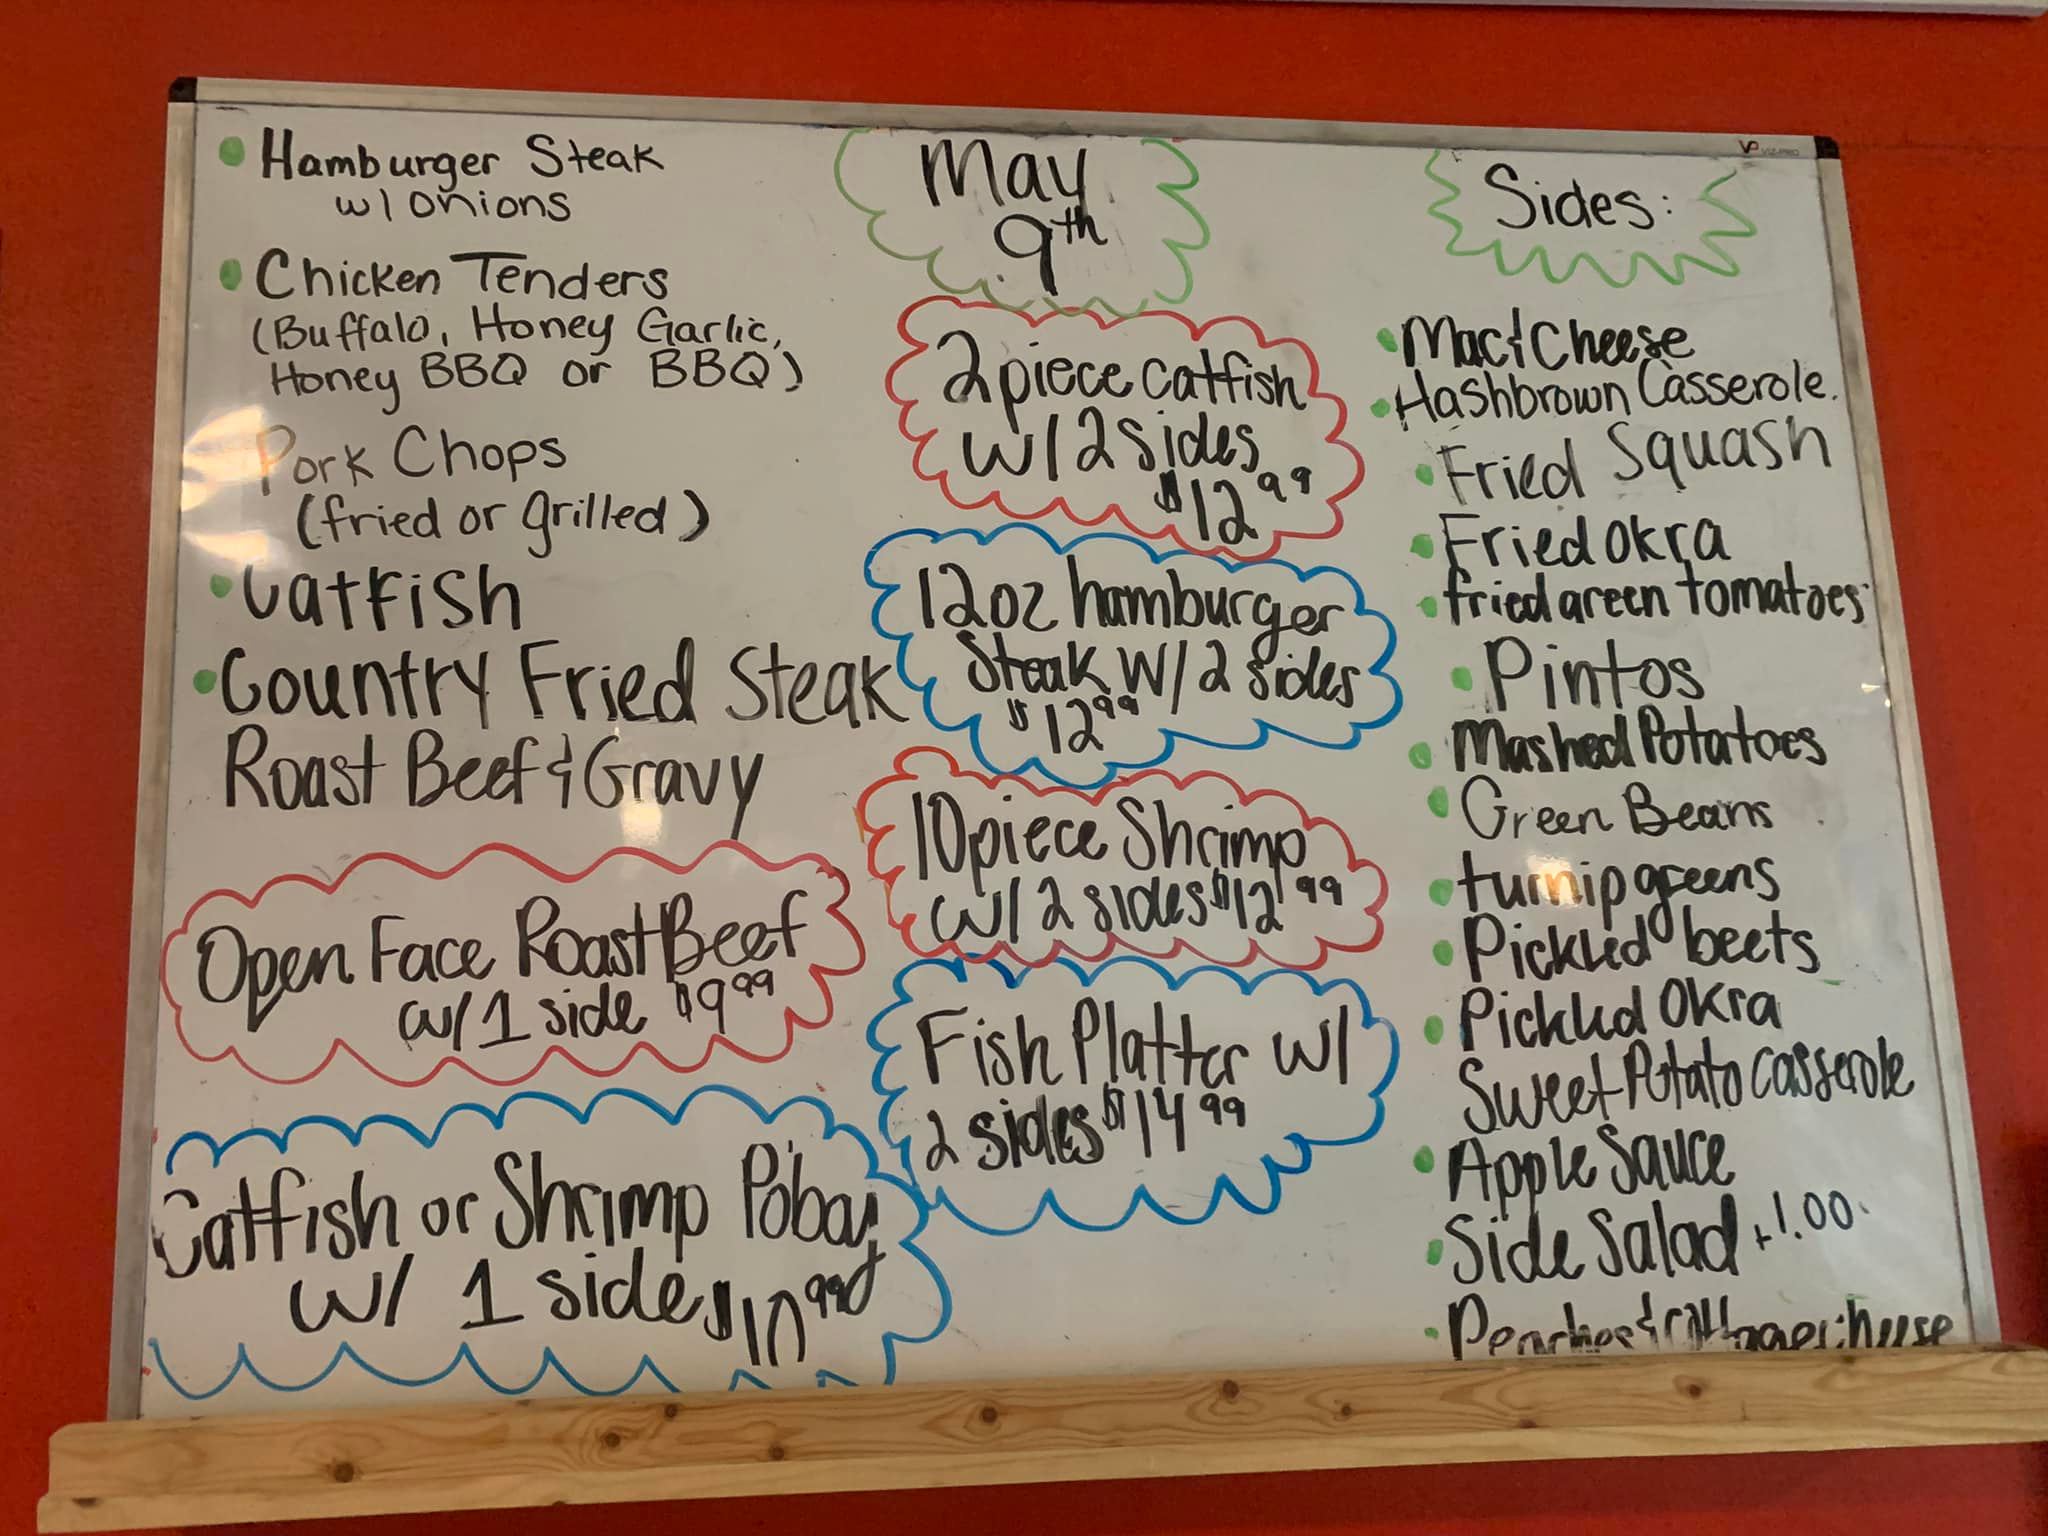 • Hamburger Steak
w/ onions
• Chicken Tenders
(Buffalo, Honey Garlic,
Honey BBQ or BBQ)
Pork Chops
(fried or grilled)
• Catfish
• Country Fried Steak
Roast Beef & Gravy
Open Face Roast Beef
w/ 1 side $9.99
Catfish or Shrimp Poboy
w/ 1 side $10.99
May
9th
2 piece catfish
w/ 2 sides
$12.99
12oz hamburger
Steak w/ 2 sides
$12.99
10 piece Shrimp
w/ 2 sides $12.99
Fish Platter w/
2 sides $14.99
VIZ-PRO
Sides:
• Mac & Cheese
• Hashbrown Casserole.
• Fried Squash
• Fried Okra
• fried green tomatoes
• Pintos
• Mashed Potatoes
• Green Beans
• turnip greens
• Pickled beets
• Pickled Okra
Sweet Potato casserole
• Apple Sauce
• Side Salad +1.00
• Peaches & cottage cheese